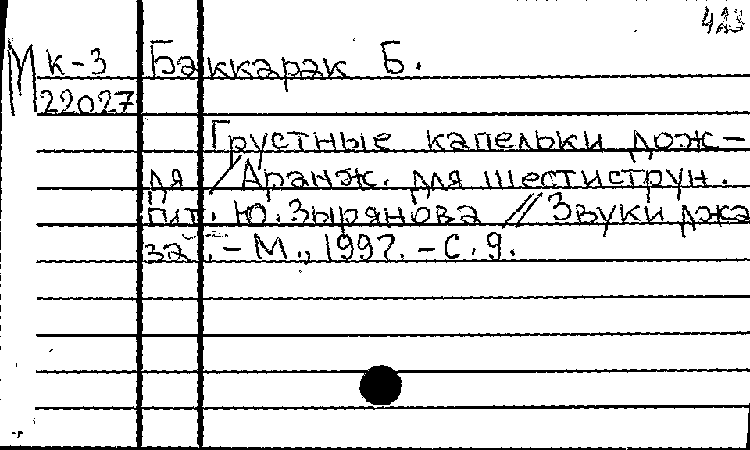 423
М к-3 Баккарак Б.
22027
Грустные капельки дож-
дя / Аранж. для шестиструн.
гит. Ю. Зырянова // Звуки джа
за. - М., 1997. - С. 9.